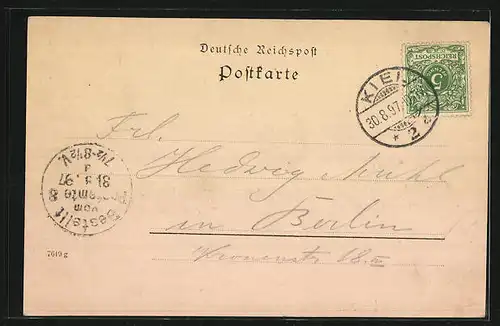 Deutsche Reichspost
Postkarte
REICHSPOST
5
KIEL
30.8.97
* 2
Frl.
Hedwig Mühl
in Berlin
Kronenstr. 18 III
Bestellt
vom
Postamte 8
31 8 97
7½-8½ V.
7619 g